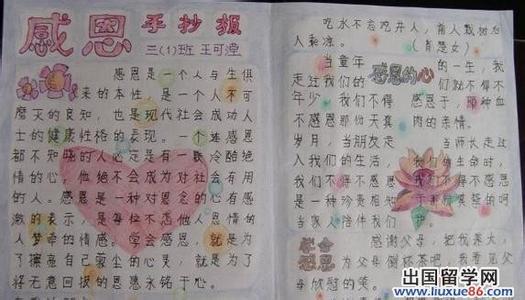 感恩 手抄报
三(1)班 王可滢
感恩是一个人与生俱
来的本性,是一个人不可
磨灭的良知,也是现代社会成功人
士的健康性格的表现。一个连感恩
都不知晓的人必定是有一颗冷酷绝
情的心,他绝不会成为对社会有用
的人。感恩是一种对恩惠心有感
激的表示,是每位不忘他人恩情的
人梦牵的情感。学会感恩,就是为
了擦亮自己蒙尘的心灵,就是为了
将无意回报的恩惠永铭于心。
吃水不忘挖井人,前人栽树后
人乘凉。
感恩的心
当童年 的一生,我
走过我们的 们就不得不
年少 我们不得 感恩于,那种血
不感恩那份天真 肉的亲情。
岁月,当朋友走 当师长走过
入我们的生活, 我们的生命时,
我们不得不感恩 我们不得不感恩
是一种珍贵相知
当家人陪伴我们
学会
感恩
感谢父母,把我养大,
为父母倒杯茶吧,我要
母欣慰的笑。
出国留学网
www.liuxue86.com